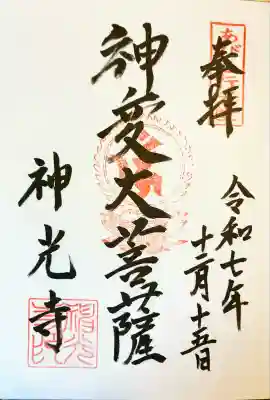 奉拝
令和七年
十二月十五日
神変大菩薩
神光寺